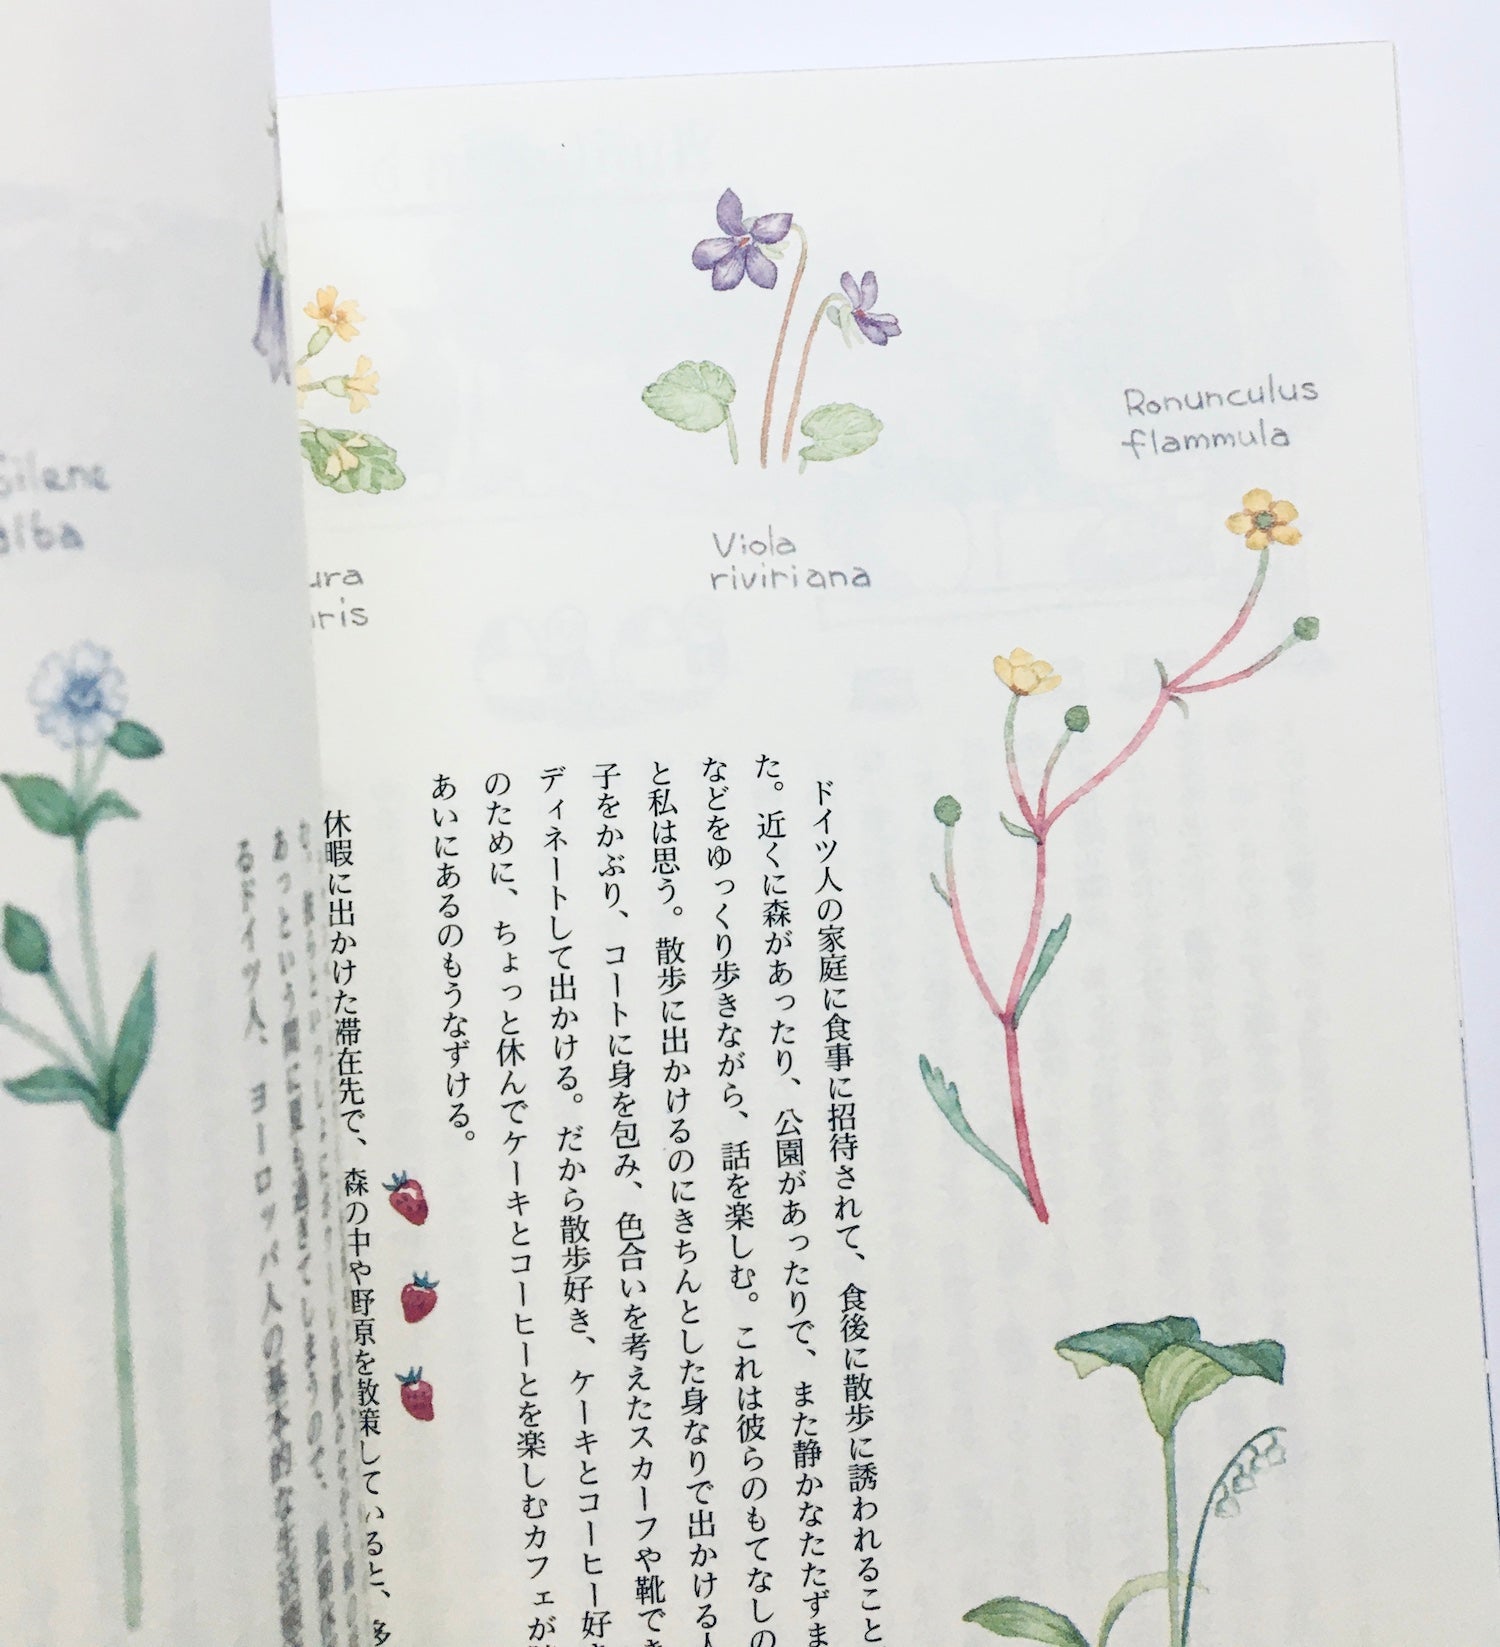 Silene
alba
ura
aris
Viola
riviriana
Ronunculus
flammula
ドイツ人の家庭に食事に招待されて、食後に散歩に誘われること
た。近くに森があったり、公園があったりで、また静かなたたずま
などをゆっくり歩きながら、話を楽しむ。これは彼らのもてなしの
と私は思う。散歩に出かけるのにきちんとした身なりで出かける人
子をかぶり、コートに身を包み、色合いを考えたスカーフや靴でき
ディネートして出かける。だから散歩好き、ケーキとコーヒー好き
のために、ちょっと休んでケーキとコーヒーとを楽しむカフェが
あいにあるのもうなずける。
休暇に出かけた滞在先で、森の中や野原を散策していると、多
あっという間に夏も過ぎてしまうので、
るドイツ人、ヨーロッパ人の基本的な生活